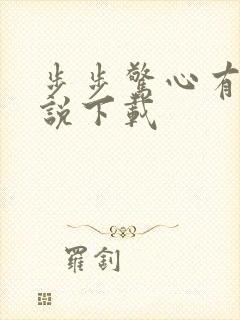 步步驚心有
說下載
羅釗